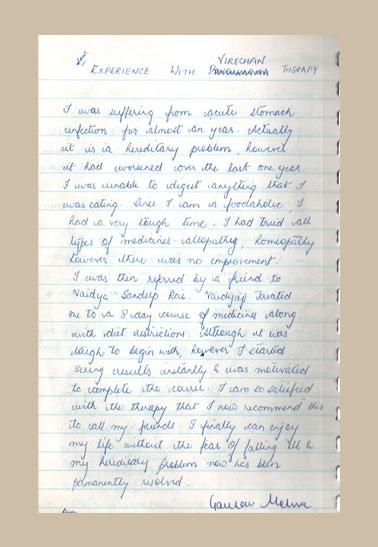 VIRECHAN
EXPERIENCE WITH PANCHKARMA THERAPY
I was suffering from acute stomach
infection for almost an year. Actually
it is a hereditary problem, however
it had worsened over the last one year.
I was unable to digest anything that I
was eating. Since I am a foodaholic, I
had a very tough time. I had tried all
types of medicines - allopathy, homeopathy
however there was no improvement.
I was then referred by a friend to
Vaidya Sandeep Rai. Vaidyaji treated
me to a 8 day course of medicines along
with diet restrictions. Although it was
tough to begin with, however I started
seeing results instantly & was motivated
to complete the course. I am so satisfied
with the therapy that I now recommend this
to all my friends. I finally can enjoy
my life without the fear of falling ill &
my hereditary problem now has been
permanently resolved.
Gaurav